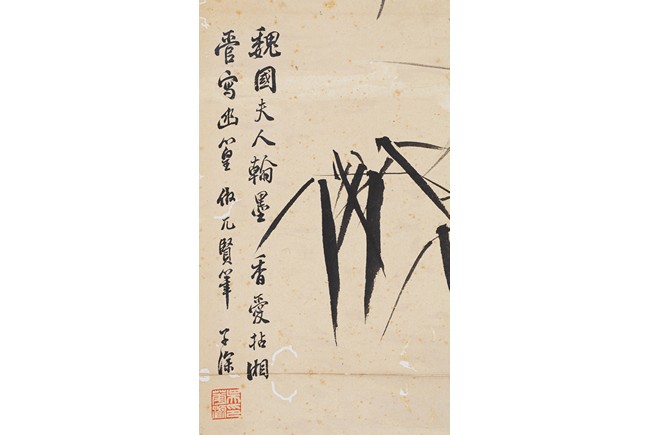 魏國夫人翰墨香愛拈湘
管寫幽篁倣元賢筆子深